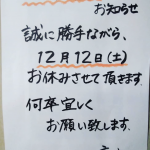 お知らせ
誠に勝手ながら、
12月12日(土)
お休みさせて頂きます.
何卒宜しく
お願い致します.